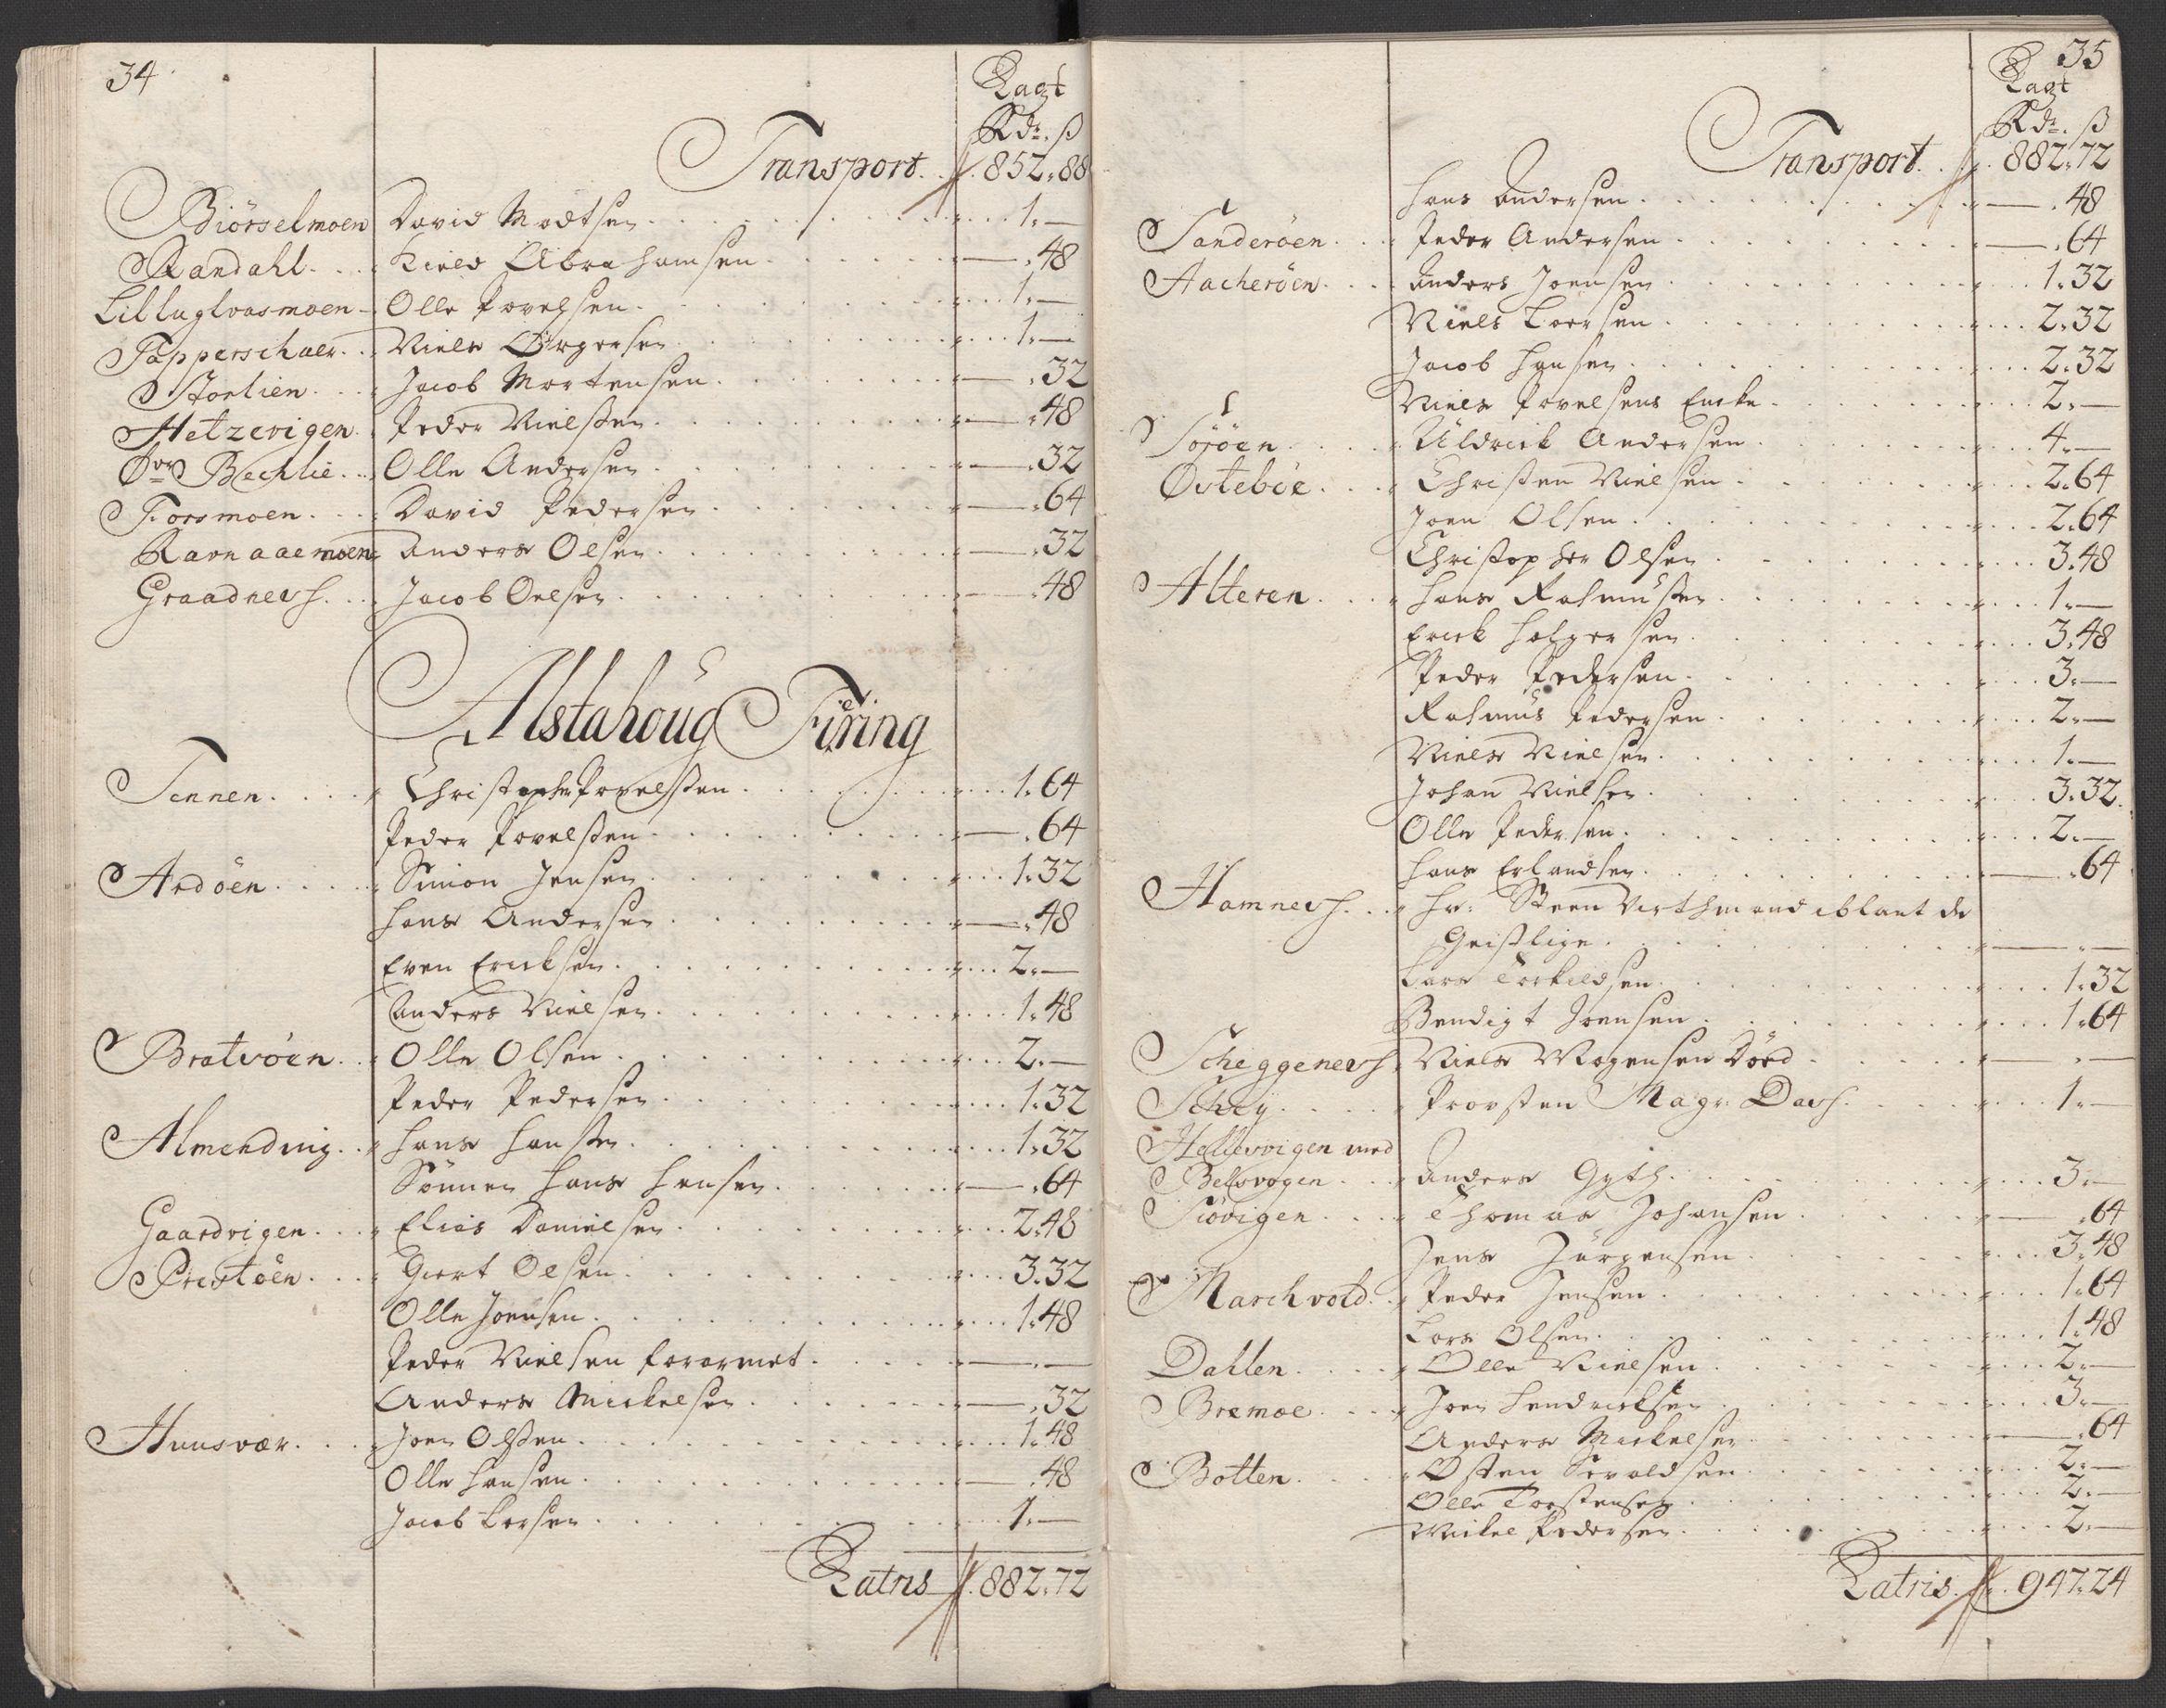 34
Lagt
Rdr. ß
Transport. 852. 88
Biörselmoen David Madtsen 1. —
Randahl. Kield Abrahamsen — . 48
Lilluglvasmoen Olle Povelsen. 1. —
Tapperschaer. Niels Ørgersen 1. —
Storlien. Jacob Mortensen. — . 32
Hetzevigen. Peder Nielssen. — . 48
Bechlie. Olle Andersen — . 32
Forsmoen. David Pedersen — . 64
Ravnaaemoen Anders Olsen — . 32
Graadnes. Jacob Oelsen — . 48
Alstahoug Firing
Tennen. Christopher Povelssen 1. 64
Peder Povelssen — . 64
Ardöen. Simon Jensen 1. 32
Hans Andersen — . 48
Even Ericksen 2. —
Anders Nielsen 1. 48
Bratvöen. Olle Olsen 2. —
Peder Pedersen 1. 32
Almending. Hans Hansen 1. 32
Sönnen Hans Hansen — . 64
Gaardvigen. Elias Danielsen 2. 48
Prestöen. Giert Olsen 3. 32
Olle Joensen 1. 48
Peder Nielsen forarmet — . —
Anders Mickelsen — . 32
Huusvær. Joen Olssen 1. 48
Olle Hansen — . 48
Jacob Larsen 1. —
Latris 882. 72
35
Lagt
Rdr. ß
Transport. 882. 72
Hans Andersen — . 48
Sanderöen. Peder Andersen — . 64
Aacheröen. Anders Joensen 1. 32
Niels Larsen 2. 32
Jacob Hansen 2. 32
Niels Povelsens Encke 2. —
Söröen. Uldrick Andersen 4. —
Östeböe. Christen Nielsen 2. 64
Joen Olsen 2. 64
Christopher Olsen 3. 48
Alteren. Hans Rasmussen 1. —
Erick Holgersen 3. 48
Peder Pedersen 3. —
Rasmus Pedersen 2. —
Niels Nielsen 1. —
Johan Nielsen 3. 32
Olle Pedersen 2. —
Hans Erlandsen — . 64
Hamnes. Hr: Steen Wirthmand iblant de
Geistlige — . —
Lars Torkildsen 1. 32
Bendigt Joensen 1. 64
Scheggenes Niels Mogensen Död — . —
Schey. Provsten Magr. Das 1. —
Hellesvigen med
Belsvogen Anders Gyth 3. —
Siövigen. Thomas Johansen — . 64
Jens Jürgensen 3. 48
Marchvold. Peder Jensen 1. 64
Lars Olsen 1. 48
Dahlen. Olle Nielsen 2. —
Bremoe. Joen Hendricksen 3. —
Anders Mickelsen — . 64
Botten. Østen Sivaldsen 2. —
Olle Torstensen 2. —
Mickel Pedersen 2. —
Latris. 947. 24